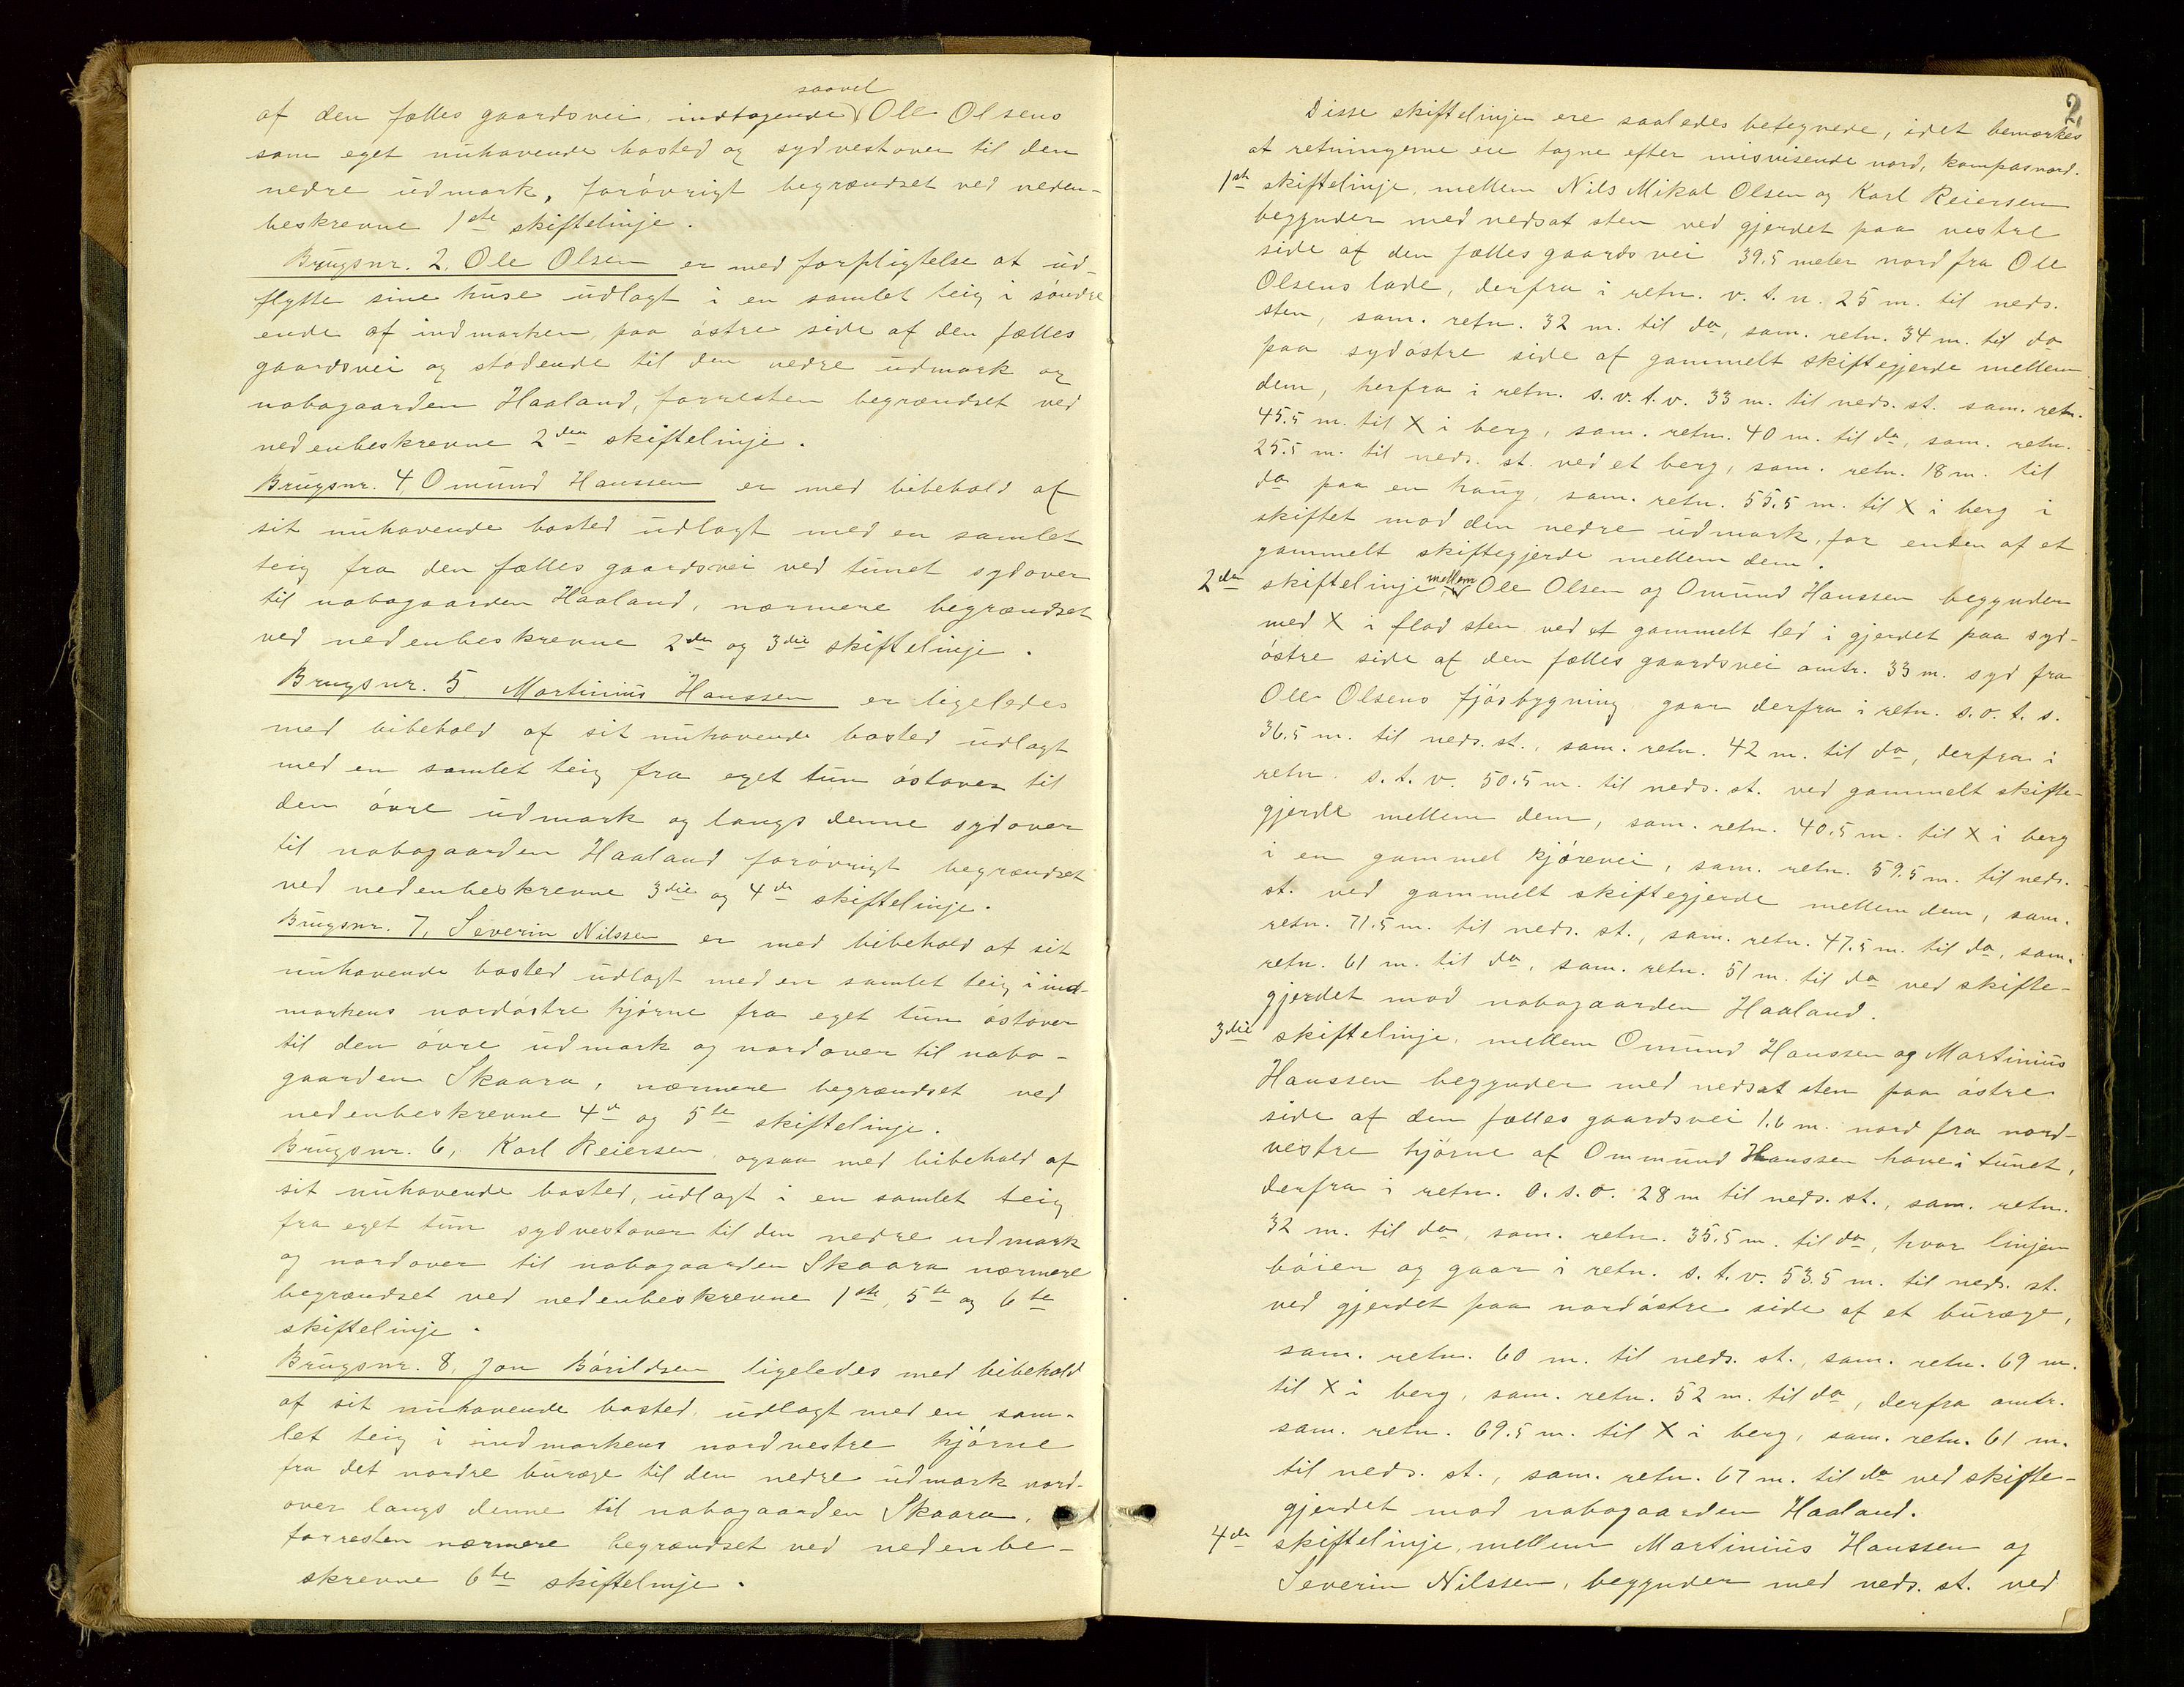 saavel
af den fælles gaardsvei, indtagende Ole Olsens
som eget nuhavende bosted og sydvestover til den
nedre udmark, forøvrigt begrændset ved neden-
beskrevne 1ste skiftelinje.
Brugsnr. 2. Ole Olsen er med forpligtelse at ud-
flytte sine huse udlagt i en samlet teig i søndre
ende af indmarken paa østre side af den fælles
gaardsvei og stødende til den nedre udmark og
nabogaarden Haaland, forresten begrændset ved
nedenbeskrevne 2den skiftelinje.
Brugsnr. 4, Omund Hanssen er med bibehold af
sit nuhavende bosted udlagt med en samlet
teig fra den fælles gaardsvei ved tunet sydover
til nabogaarden Haaland, nærmere begrændset
ved nedenbeskrevne 2den og 3die skiftelinje.
Brugsnr. 5. Martinius Hanssen er ligeledes
med bibehold af sit nuhavende bosted udlagt
med en samlet teig fra eget tun østover til
den øvre udmark og langs denne sydover
til nabogaarden Haaland forøvrigt begrændset
ved nedenbeskrevne 3die og 4de skiftelinje.
Brugsnr. 7, Severin Nilssen er med bibehold af sit
nuhavende bosted udlagt med en samlet teig i ind-
markens nordøstre hjørne fra eget tun østover
til den øvre udmark og nordover til nabo-
gaarden Skaara, nærmere begrændset ved
nedenbeskrevne 4de og 5te skiftelinje.
Brugsnr. 6, Karl Reiersen ogsaa med bibehold af
sit nuhavende bosted, udlagt i en samlet teig
fra eget tun sydvestover til den nedre udmark
og nordover til nabogaarden Skaara nærmere
begrændset ved nedenbeskrevne 1ste, 5te og 6te
skiftelinje.
Brugsnr. 8, Jon Bårildsen ligeledes med bibehold
af sit nuhavende bosted, udlagt med en sam-
let teig i indmarkens nordvestre hjørne
fra det nordre buræge til den nedre udmark nord-
over langs denne til nabogaarden Skaara,
forresten nærmere begrændset ved nedenbe-
skrevne 6te skiftelinje.
2
Disse skiftelinjer ere saaledes betegnede, idet bemærkes
at retningerne ere tagne efter misvisende nord, kompasnord.
1ste skiftelinje, mellem Nils Mikal Olsen og Karl Reiersen
begynder med nedsat sten ved gjerdet paa vestre
side af den fælles gaardsvei 39.5 meter nord fra Ole
Olsens lade, derfra i retn. v. t. n. 25 m. til neds.
sten, sam. retn. 32 m. til do, sam. retn. 34 m. til do
paa sydøstre side af gammelt skiftegjerde mellem
dem, herfra i retn. s. v. t. v. 33 m. til neds. st. sam. retn.
45.5 m. til X i berg, sam. retn. 40 m. til do, sam. retn.
25.5 m. til neds. st. ved et berg, sam. retn. 18 m. til
do paa en haug, sam. retn. 55.5 m. til X i berg i
skiftet mod den nedre udmark, for enden af et
gammelt skiftegjerde mellem dem.
2den skiftelinje, mellem Ole Olsen og Omund Hanssen begynder
med X i flad sten ved et gammelt led i gjerdet paa syd-
østre side af den fælles gaardsvei omtr. 33 m. syd fra
Ole Olsens fjøsbygning gaar derfra i retn. s. o. t. s.
36.5 m. til neds. st., sam. retn. 42 m. til do, derfra i
retn. s. t. v. 50.5 m. til neds. st. ved gammelt skifte-
gjerde mellem dem, sam. retn. 40.5 m. til X i berg
i en gammel kjørevei, sam. retn. 59.5 m. til neds.
st. ved gammelt skiftegjerde mellem dem, sam.
retn. 71.5 m. til neds. st., sam. retn. 47.5 m. til do, sam.
retn. 61 m. til do, sam. retn. 51 m. til do ved skifte-
gjerdet mod nabogaarden Haaland.
3die skiftelinje, mellem Omund Hanssen og Martinius
Hanssen begynder med nedsat sten paa østre
side af den fælles gaardsvei 1.6 m. nord fra nord-
vestre hjørne af Ommund Hanssen have i tunet,
derfra i retn. o. s. o. 28 m til neds. st., sam. retn.
32 m. til do, sam. retn. 35.5 m. til do, hvor linjen
bøier og gaar i retn. s. t. v. 53.5 m. til neds. st.
ved gjerdet paa nordøstre side af et buræge,
sam. retn. 60 m. til neds. st., sam. retn. 69 m.
til X i berg, sam. retn. 52 m. til do, derfra omtr.
sam. retn. 69.5 m. til X i berg, sam. retn. 61 m.
til neds. st., sam. retn. 67 m. til do ved skifte-
gjerdet mod nabogaarden Haaland.
4de skiftelinje, mellem Martinius Hanssen og
Severin Nilssen, begynder med neds. st. ved